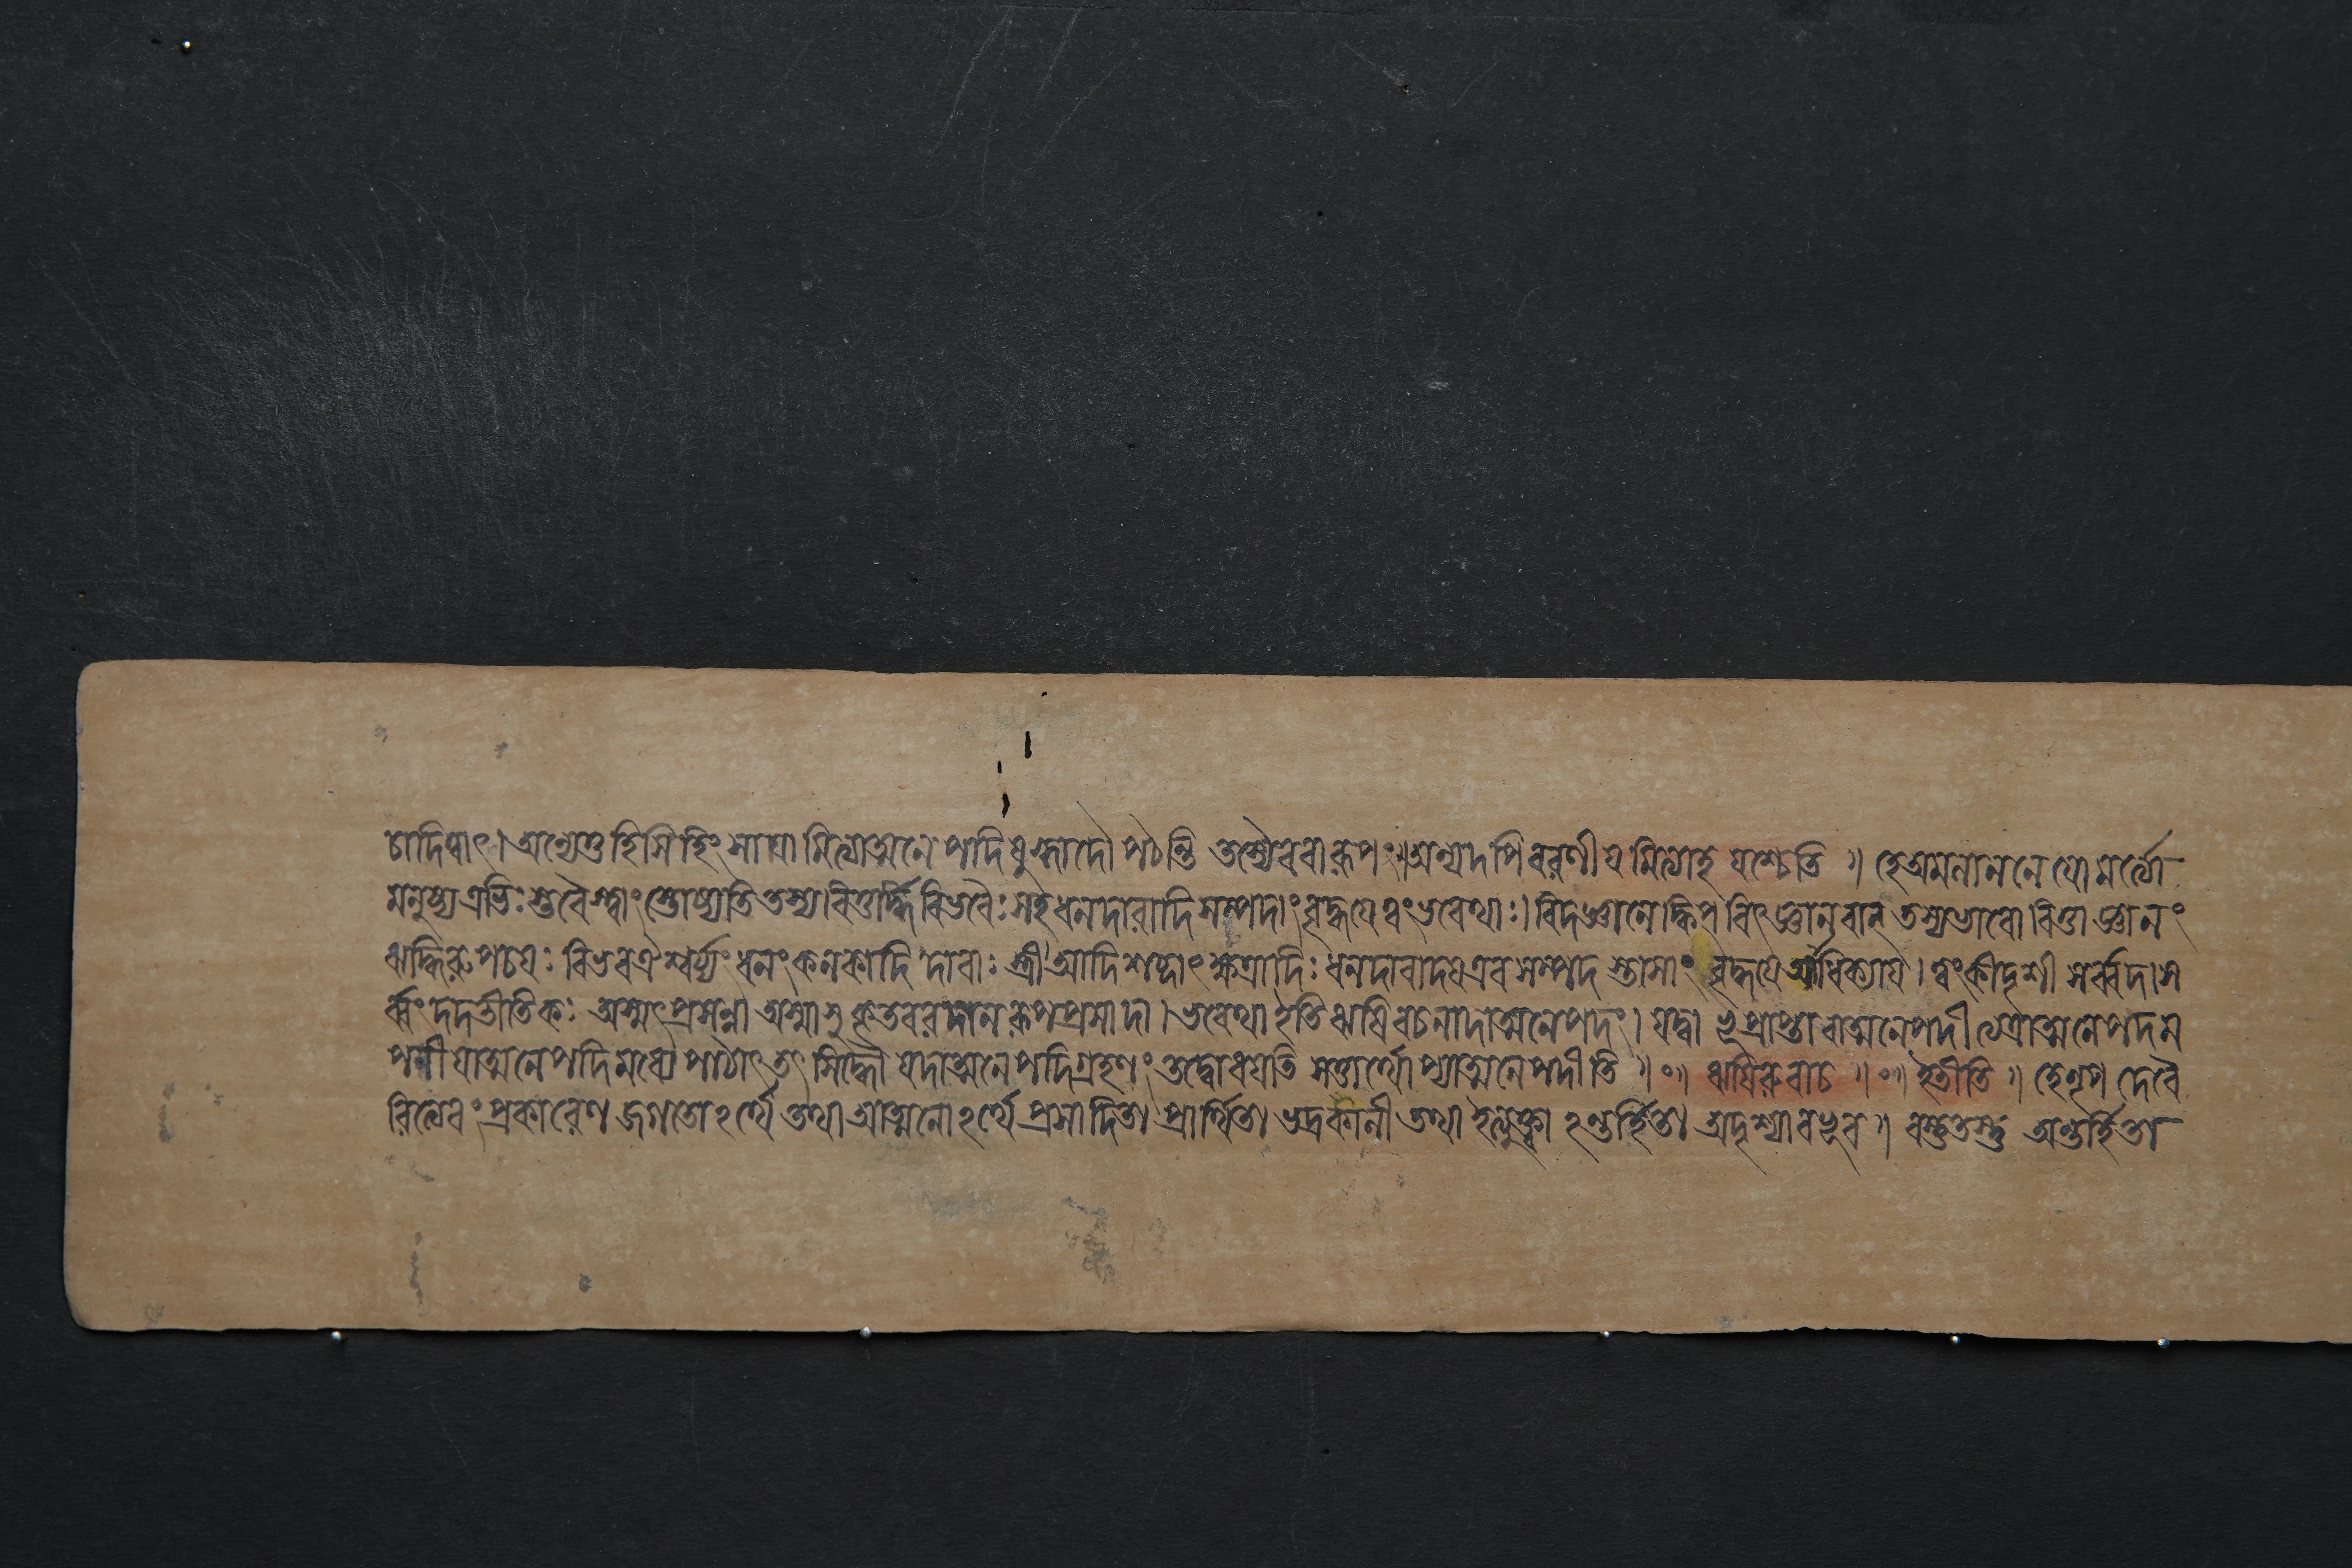 চাদিত্বাৎ। অন্যেতু হিসি হিংসাযামিত্যাত্মনে পদিষু রুধাদৌ পঠন্তি তস্যৈবেবা রূপং॥ অন্যদপি বরণীয মিত্যাহ যশ্চেতি ॥ হে অমলাননে যো মর্ত্ত্যো
মনুষ্য এভিঃ স্তবৈস্ত্বাং স্তোষ্যতি তস্য বিত্তর্দ্ধি বিভবৈঃ সহ ধনদারাদি সম্পদাং বৃদ্ধযে ত্বং ভবেথাঃ। বিদ জ্ঞানে ক্বিপ্ বিৎ জ্ঞানবান্ তস্য ভাবো বিত্তা জ্ঞানং
ঋদ্ধিরুপচযঃ বিভব ঐশ্বর্য্যং ধনং কনকাদি দারাঃ স্ত্রী আদি শব্দাৎ ক্ষেত্রাদিঃ ধনদারাদয এব সম্পদ স্তাসাং বৃদ্ধযে আধিক্যায। ত্বং কীদৃশী সর্ব্বদা স
র্ব্বং দদাতীতি কঃ অস্মৎপ্রসন্না অস্মাসু কৃতবরদান রূপপ্রসাদা। ভবেথা ইতি ঋষি বচনাদাত্মনেপদং। যদ্বা ভূ প্রাপ্তাবাত্মনেপদী ত্যত্রাত্মনেপদম
পনীযাত্মনেপদিমধ্যে পাঠাৎ তৎ সিদ্ধৌ যদাত্মনে পদিগ্রহণং তদ্বোধযতি সত্তার্থোপ্যাত্মনেপদীতি ॥ ০ ॥ ঋষিরুবাচ ॥ ০ ॥ ইতীতি ॥ হে নৃপ দেবৈ
রিত্যেবং প্রকারেণ জগতোঽর্থে তথা আত্মনোঽর্থে প্রসাদিতা প্রার্থিতা ভদ্রকালী তথা ইত্যুক্ত্বা ঽন্তর্হিতা অদৃশ্যা বভূব ॥ বস্তুতস্তু অন্তর্হিতা